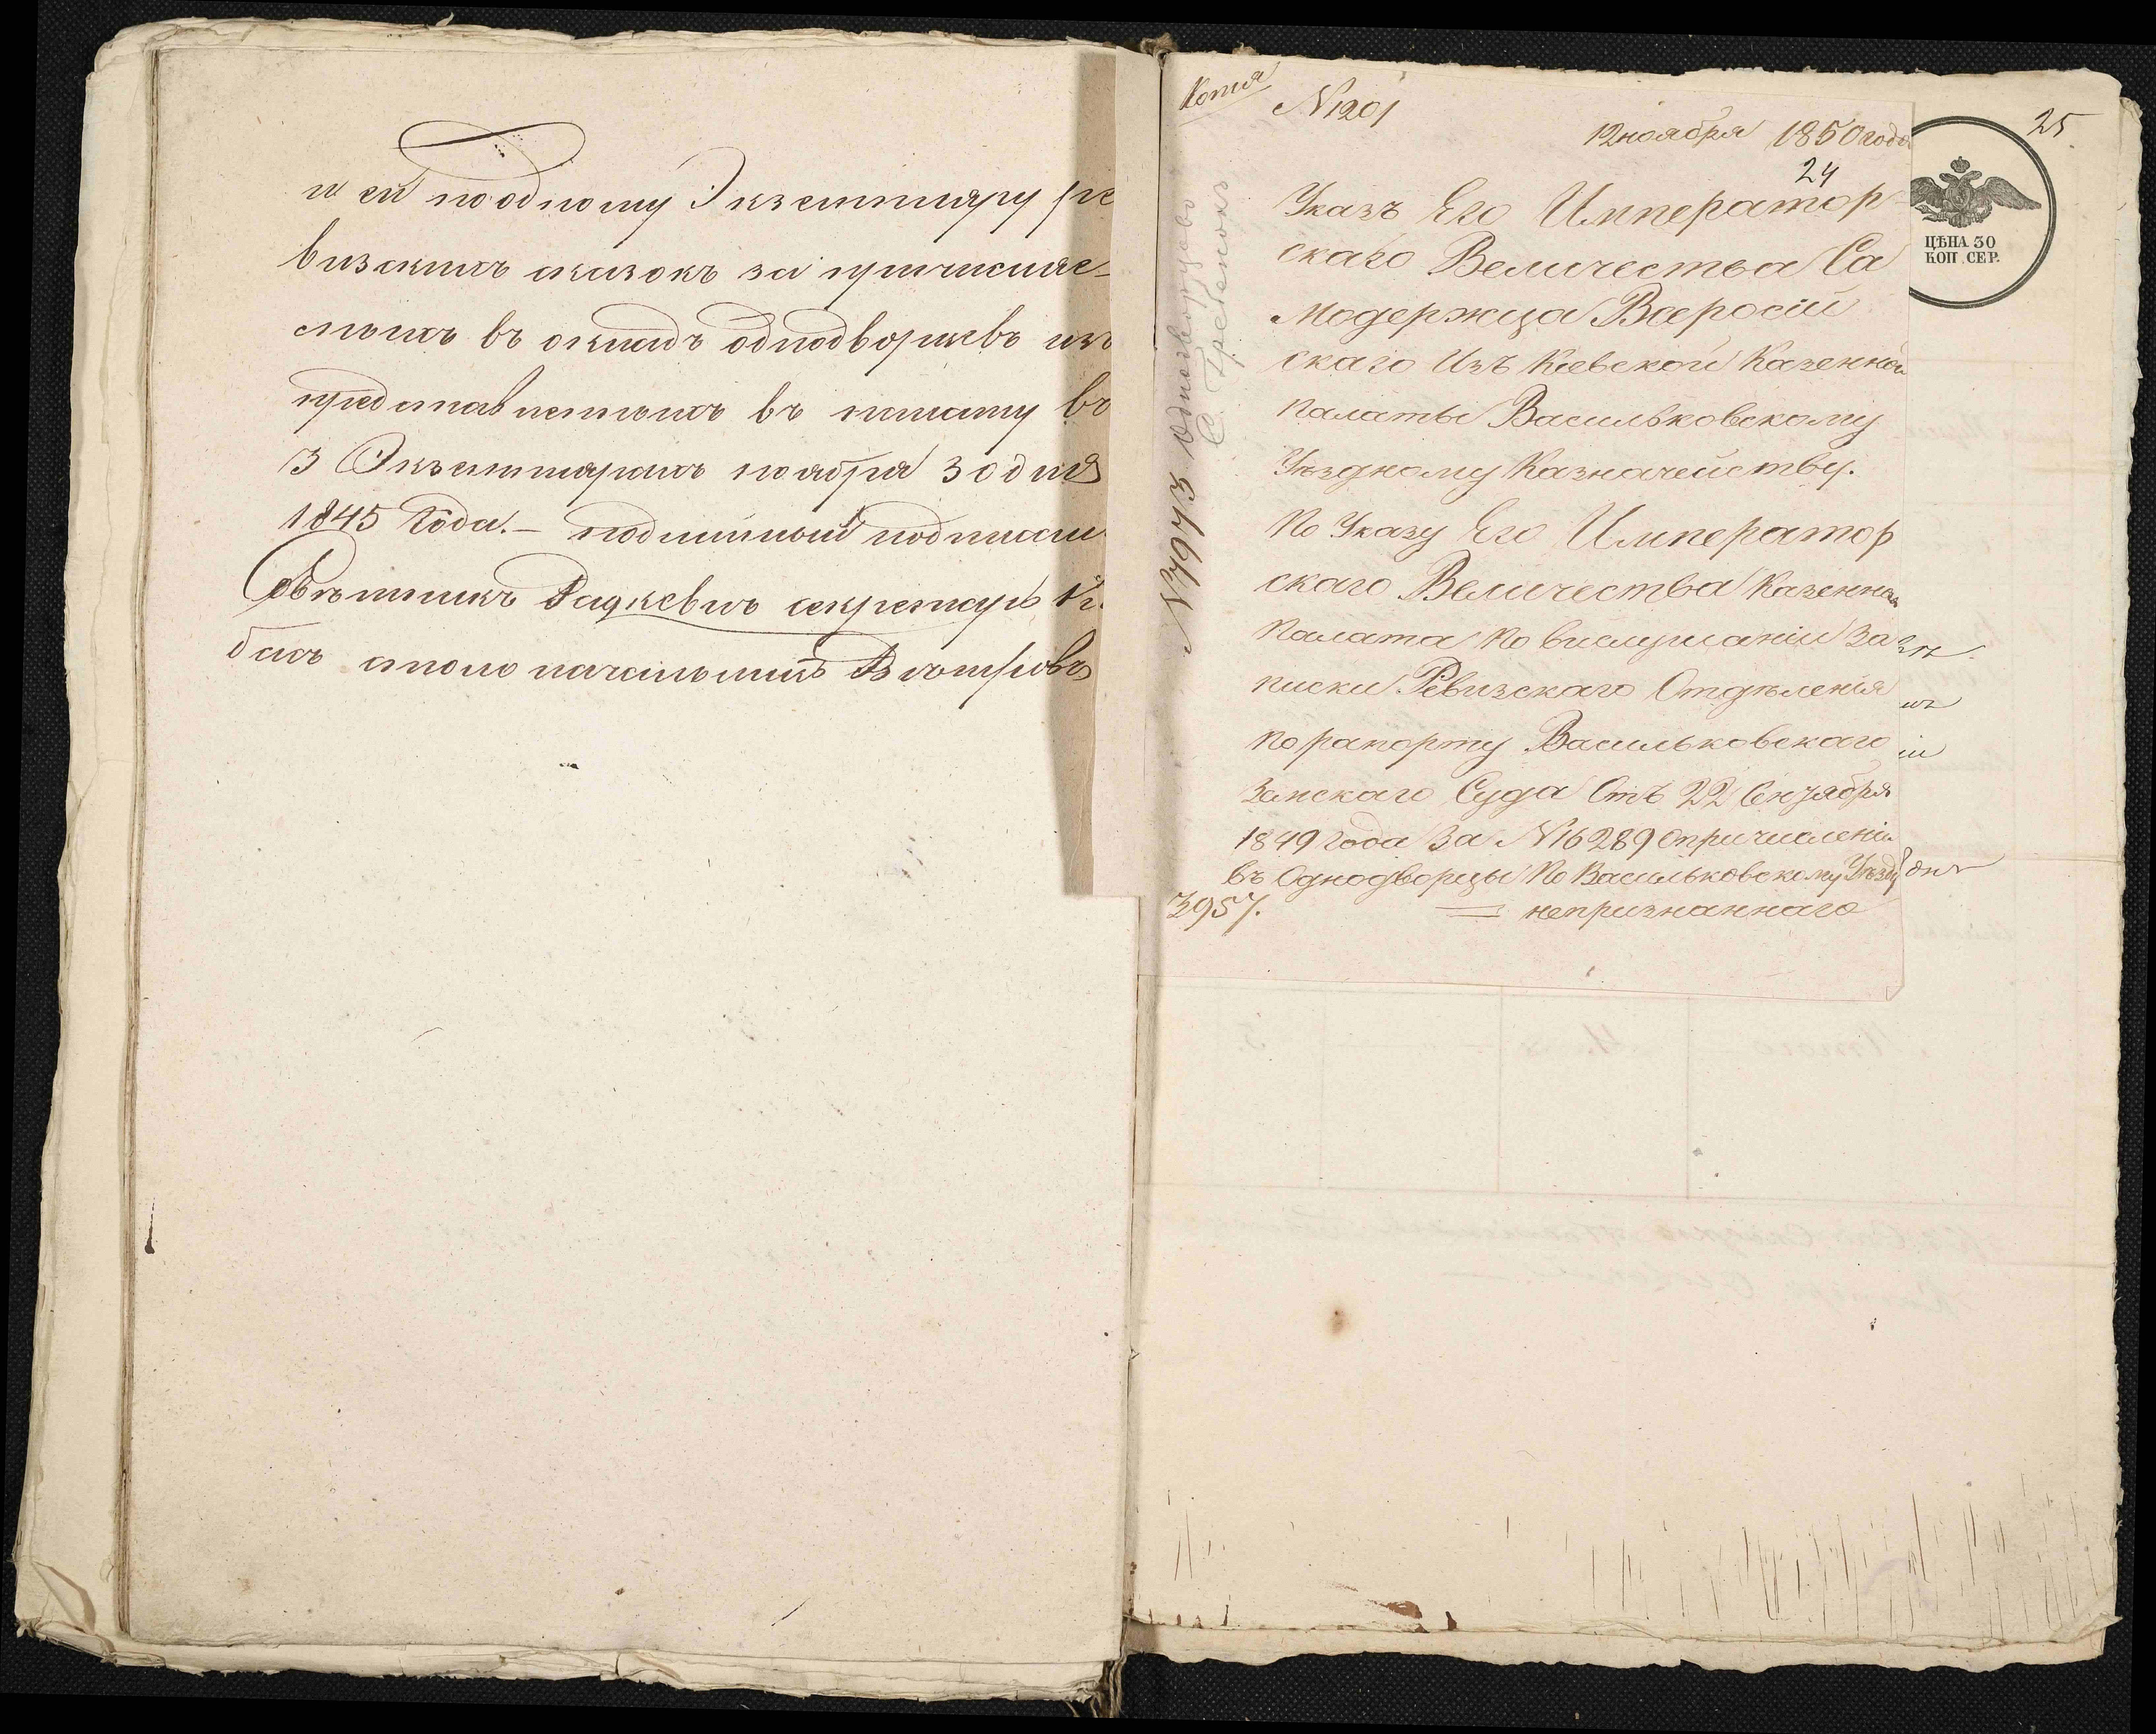 и ей по одному Экземпляру ре
визскихъ сказокъ за причисляе-
мыхъ въ окладъ однодворцевъ изъ
представленныхъ въ палату въ
3 Экземплярахъ ноября 30 дня
1845 Года. — подлинный подписали
Совѣтникъ секретарь
столоначальникъ
Копія
N1201
12 ноября 1850 года
25
24
Указъ Его Император-
скаго Величества Са
модержца Всеросій
скаго Изъ Кіевской Казенной
палаты Васильковскому
Уѣздному Казначейству.
По Указу Его Император
скаго Величества Казенная
Палата по выслушаніи За
писки Ревизскаго Отдѣленія
По рапорту Васильковскаго
Земскаго Суда Отъ 22 Сентября
1849 года За N16289 О причисленіи
въ Однодворцы По Васильковскому Уѣзду
3957. = непризнаннаго
N7973
С. Гребенокъ
ЦѢНА 30
КОП. СЕР.